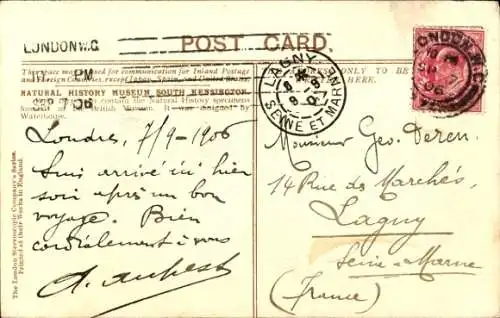 LONDON W.C
POST CARD.
This space may be used for communication for Inland Postage
and Foreign Countries, except
PM
SP 7 06
NATURAL HISTORY MUSEUM SOUTH KENSINGTON.
contain the Natural History specimens
British Museum. It was designed by
Waterhouse.
Londres, 7/9-1906
Suis arrivé ici hier
soir après un bon
voyage. Bien
cordialement à vous
The London Stereoscopic Company's Series.
Printed at their Works in England.
LAGNY
SEINE ET MARNE
TO BE
HERE.
LONDON
06
Monsieur Geo. Deren.
14 Rue des Marchés,
Lagny
Seine-Marne
(France)